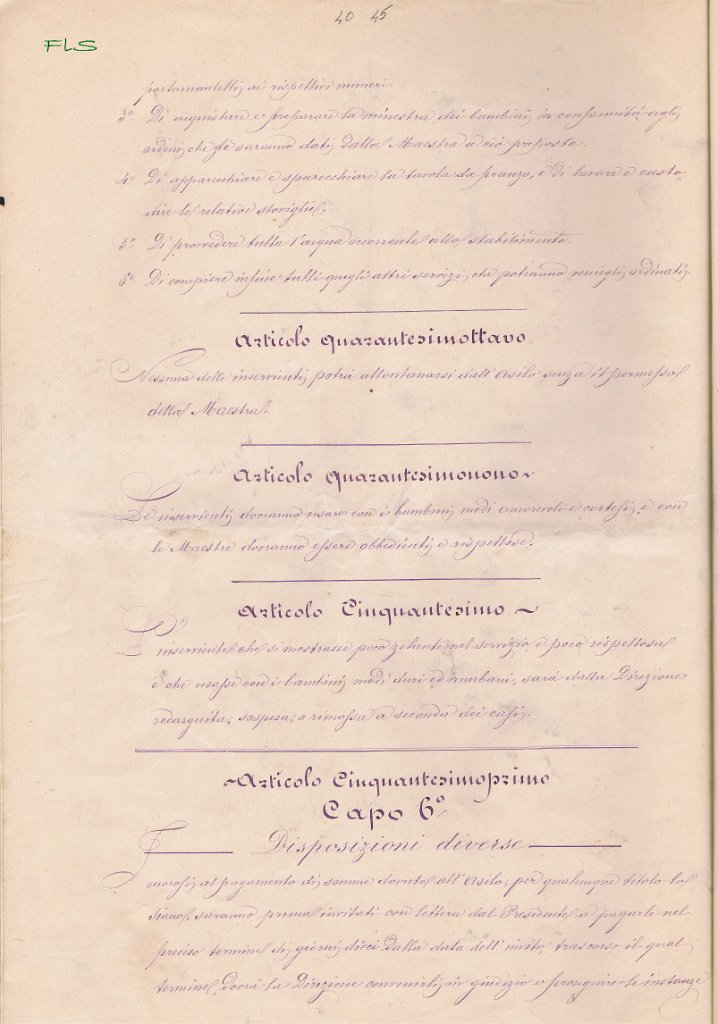 40 45
FLS
portamantelli ai rispettivi numeri.
3° Di acquistare e preparare la minestra dei bambini in conformità agli
ordini che le saranno dati dalla Maestra a ciò preposta.
4° Di apparecchiare e sparecchiare la tavola da pranzo, e di lavare e custo-
dire le relative stoviglie.
5° Di provvedere tutta l'acqua occorrente allo stabilimento.
6° Di compiere infine tutti quegli altri servizi che potranno venirgli ordinati.
Articolo Quarantesimottavo
Nessuna delle inservienti potrà allontanarsi dall'Asilo senza il permesso
della Maestra.
Articolo Quarantesimonono
Le inservienti dovranno usare con i bambini modi amorevoli e cortesi, e con
le Maestre dovranno essere obbedienti e rispettose.
Articolo Cinquantesimo
L'inserviente che si mostrasse poco zelante nel servizio, e poco rispettosa
e che usasse con i bambini modi duri ed inurbani, sarà dalla Direzione
redarguita, sospesa, o rimossa a seconda dei casi.
Articolo Cinquantesimoprimo
Capo 6°
Disposizioni diverse
I morosi al pagamento di somme dovute all'Asilo, per qualunque titolo lo
siano, saranno prima invitati con lettera dal Presidente a pagarle nel
preciso termine di giorni dieci dalla data dell'invito, trascorso il qual
termine, dovrà la Direzione convenirli in giudizio e proseguire le instanze